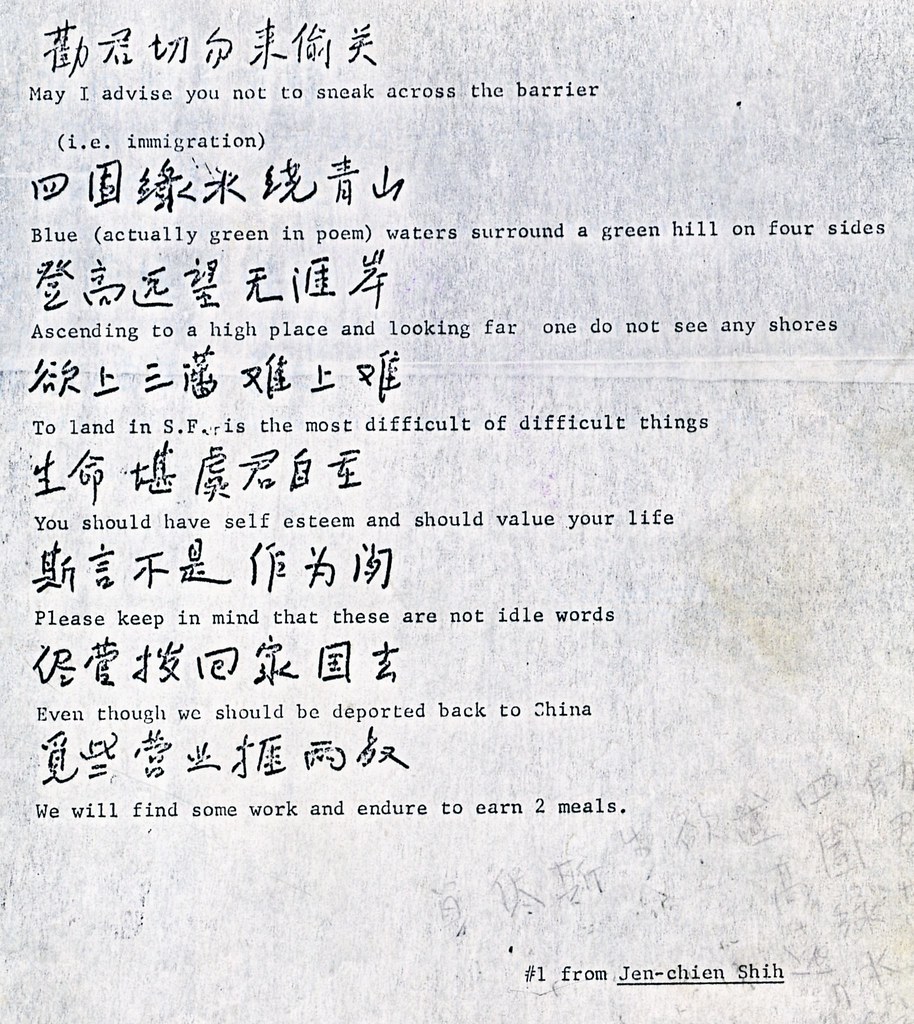 勸君切勿来偷关
May I advise you not to sneak across the barrier
(i.e. immigration)
四圍綠水绕青山
Blue (actually green in poem) waters surround a green hill on four sides
登高远望无涯岸
Ascending to a high place and looking far one do not see any shores
欲上三藩难上难
To land in S.F. is the most difficult of difficult things
生命堪虞君自重
You should have self esteem and should value your life
斯言不是作为闲
Please keep in mind that these are not idle words
侭管拨回家国去
Even though we should be deported back to China
覓些营业捱两餐
We will find some work and endure to earn 2 meals.
#1 from Jen-chien Shih